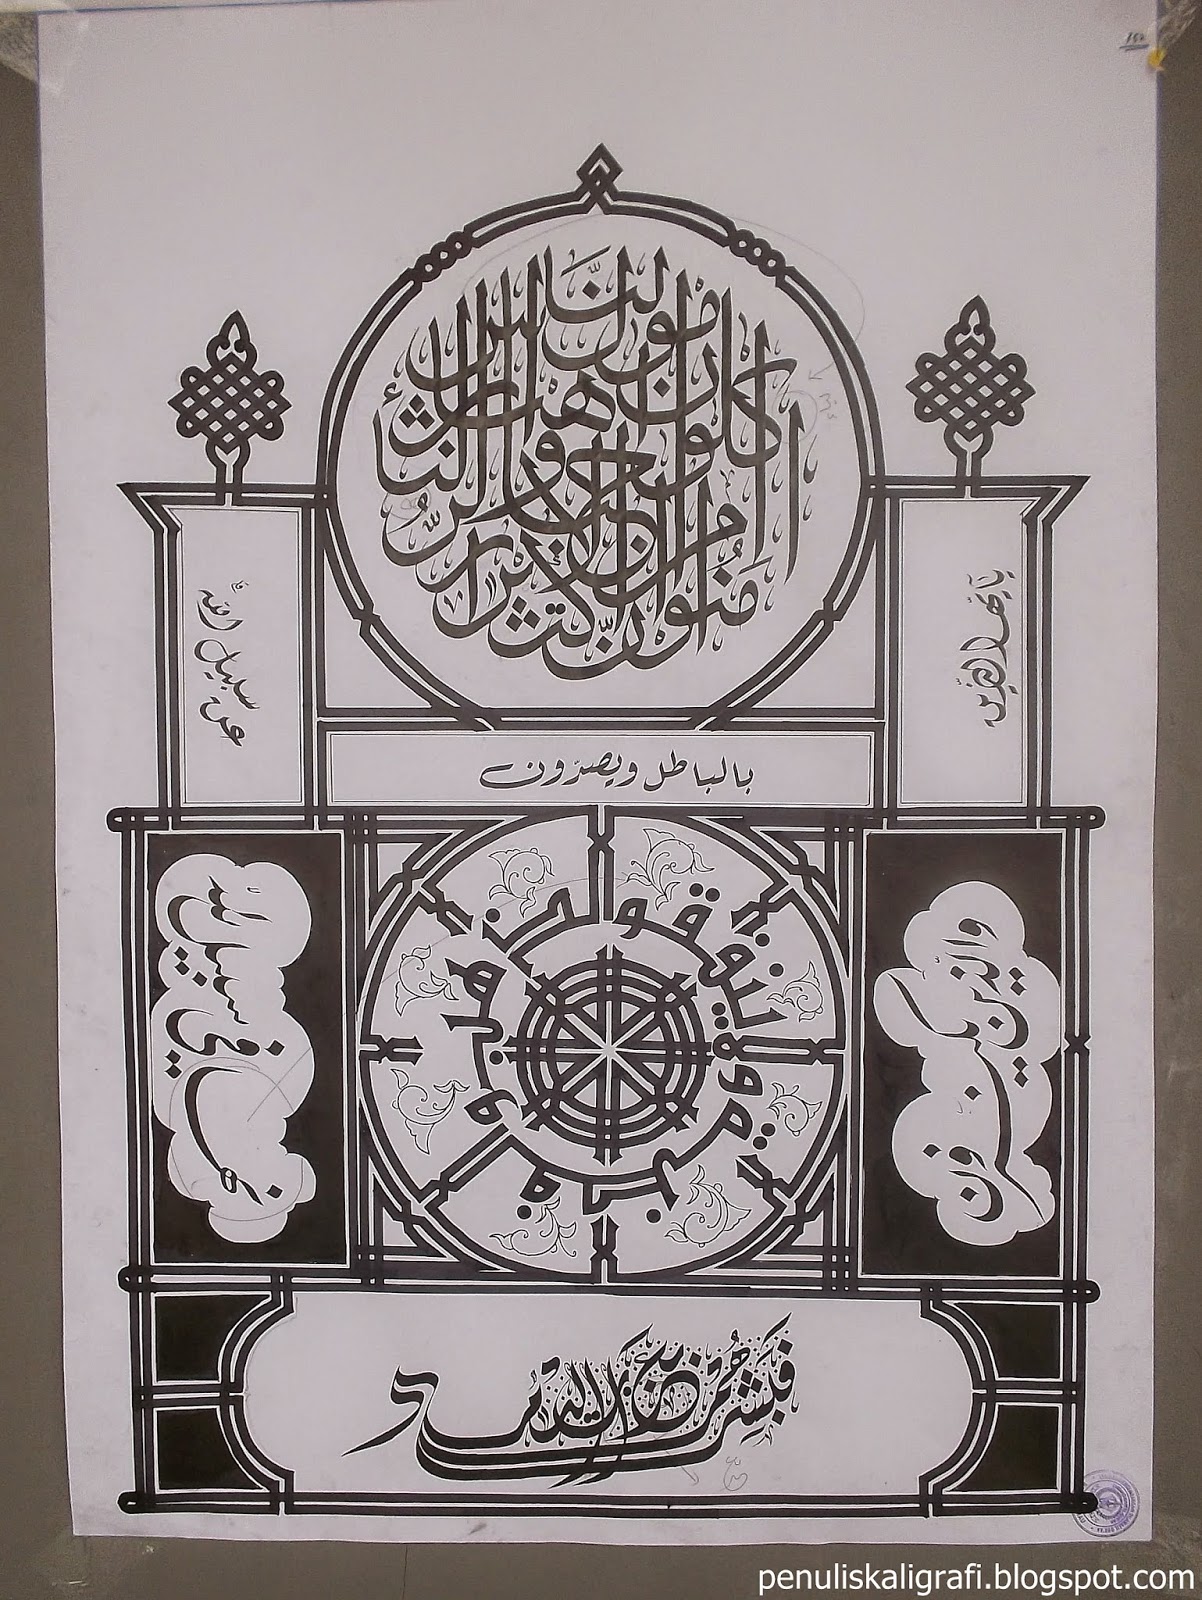 يأيها الذين
ءامنوا إن كثيرا من الأحبار والرهبان ليأكلون أموال الناس
بالباطل ويصدون
عن سبيل الله
والذين يكنزون
الذهب والفضة ولا ينفقو
نها في سبيل الله
فبشرهم بعذاب أليم
penuliskaligrafi.blogspot.com